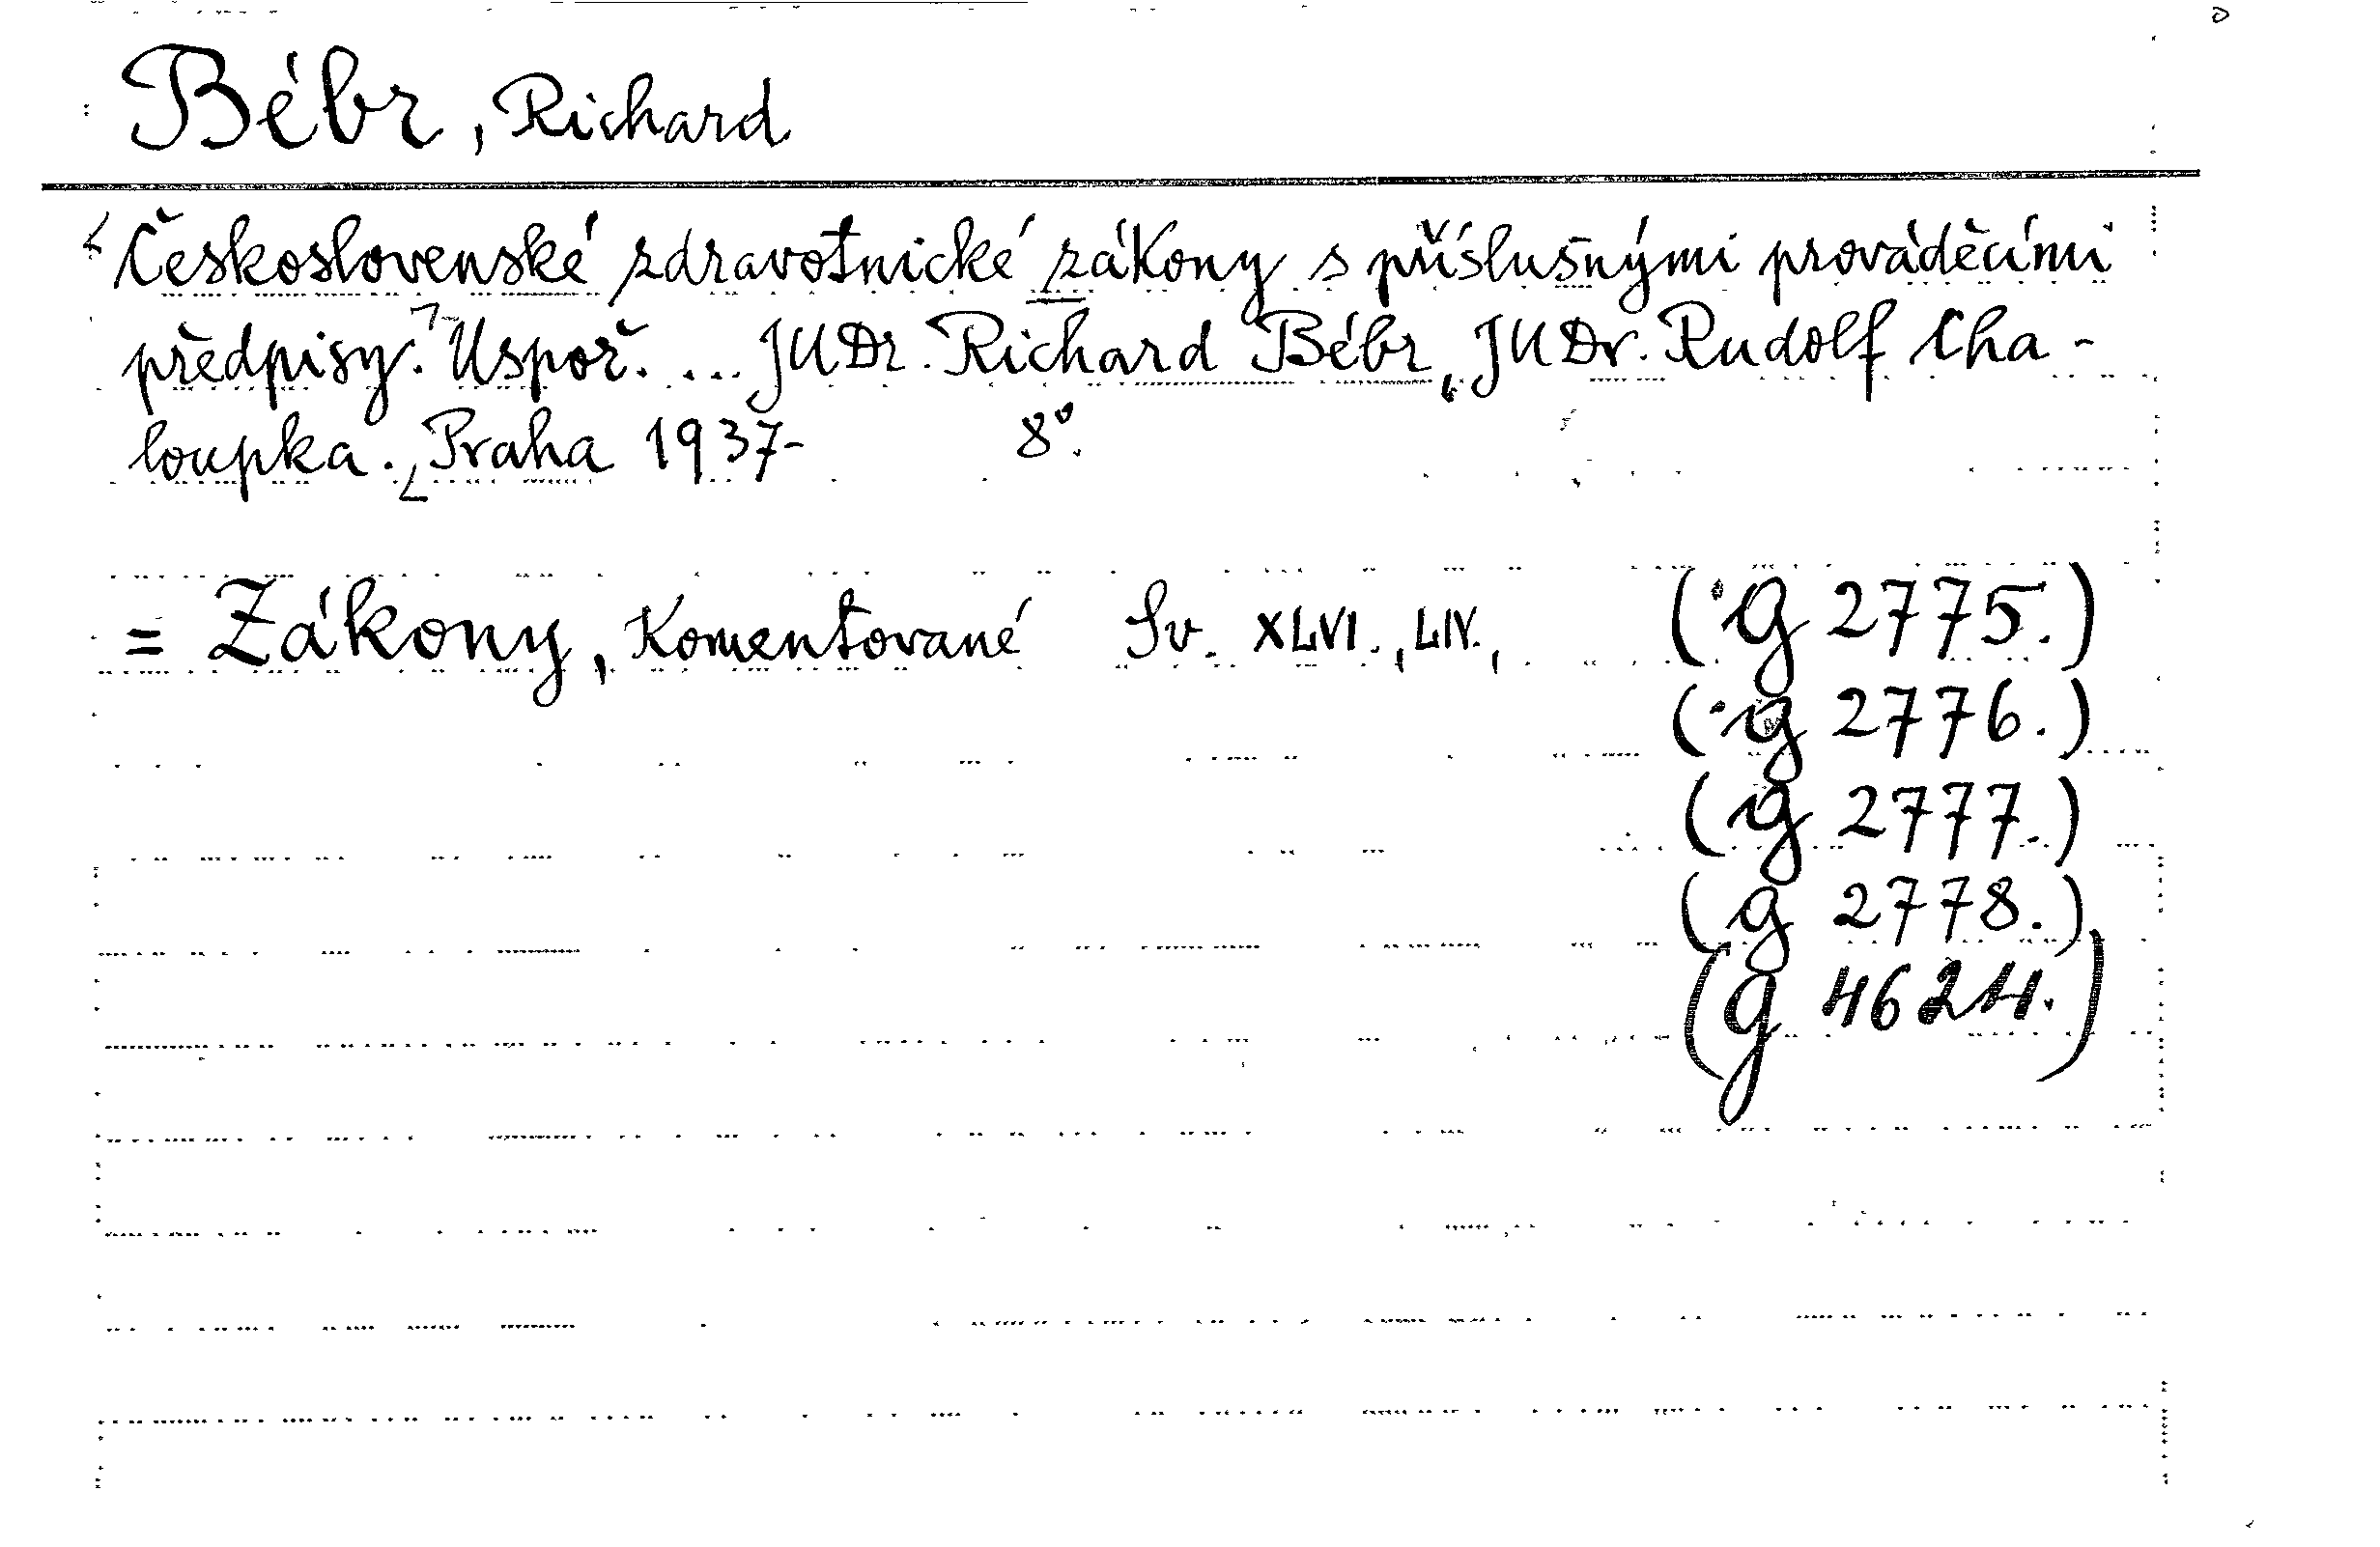 Bébr, Richard
Československé zdravotnické zákony s příslušnými prováděcími
předpisy. Uspoř. ... JUDr. Richard Bébr, JUDr. Rudolf Cha-
loupka. Praha 1937- 8°.
= Zákony, Komentované Sv. XLVI., LIV., (g 2775.)
(g 2776.)
(g 2777.)
(g 2778.)
(g 4624.)